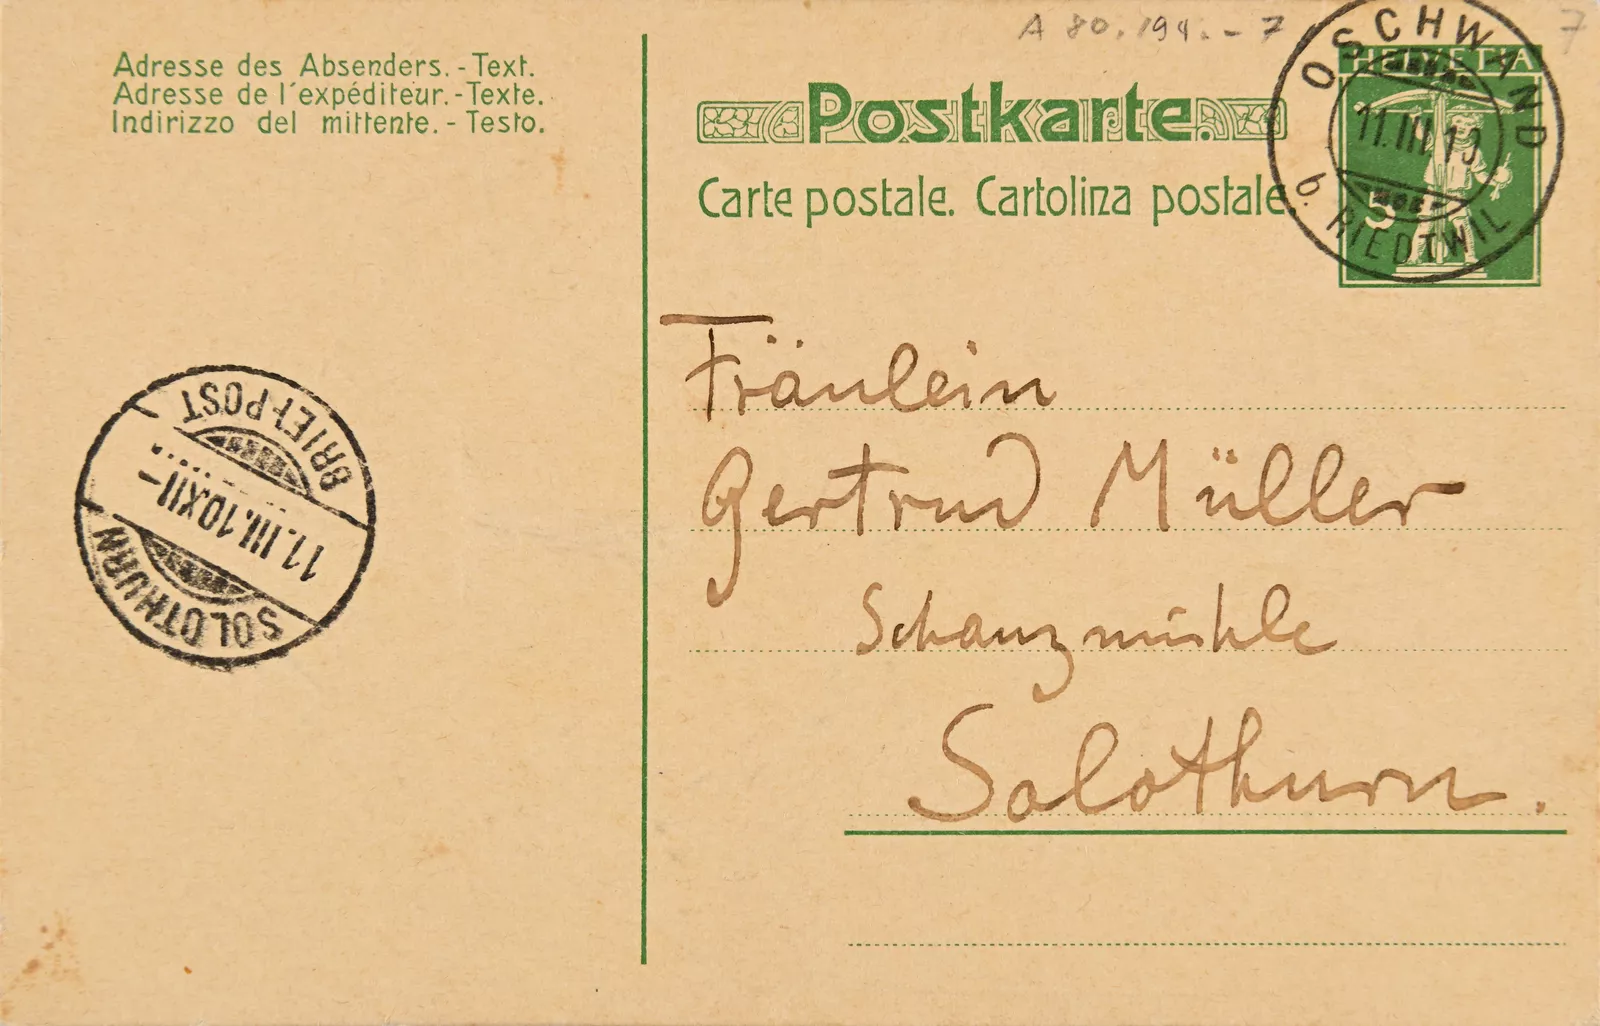 A 80.194.-7
7
Adresse des Absenders. - Text.
Adresse de l'expéditeur. - Texte.
Indirizzo del mittente. - Testo.
Postkarte.
Carte postale. Cartolina postale.
HELVETIA
5
OSCHWAND
11.III.10
b. RIEDTWIL
BRIEF-POST
11.III.10.XII-
SOLOTHURN
Fräulein
Gertrud Müller
Schanzmühle
Solothurn.